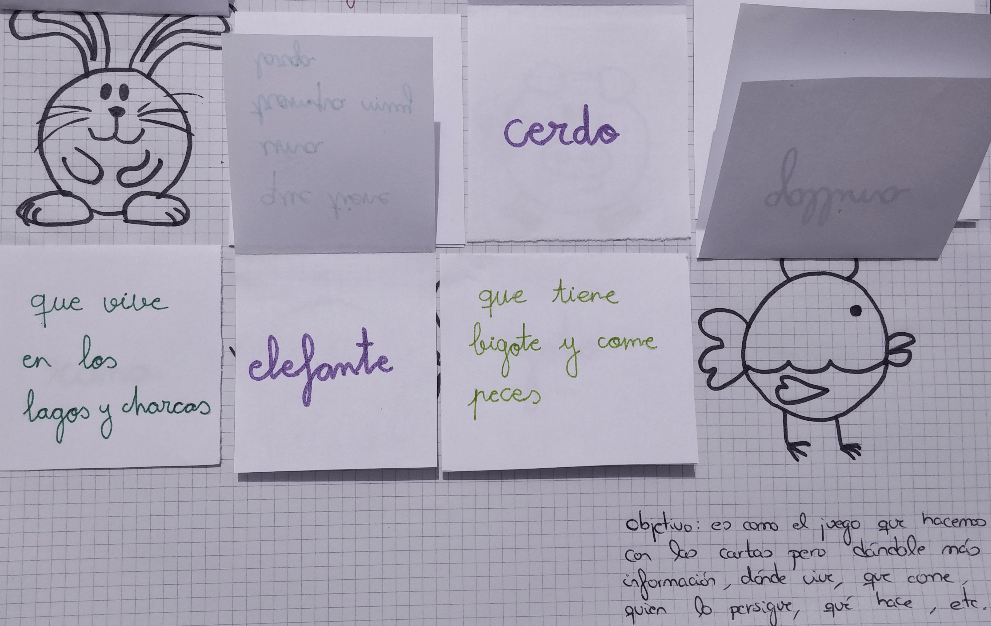 cerdo
que vive
en los
lagos y charcas
elefante
que tiene
bigote y come
peces
objetivo: es como el juego que hacemos
con las cartas pero dándole más
información, dónde vive, que come,
quien lo persigue, qué hace, etc.